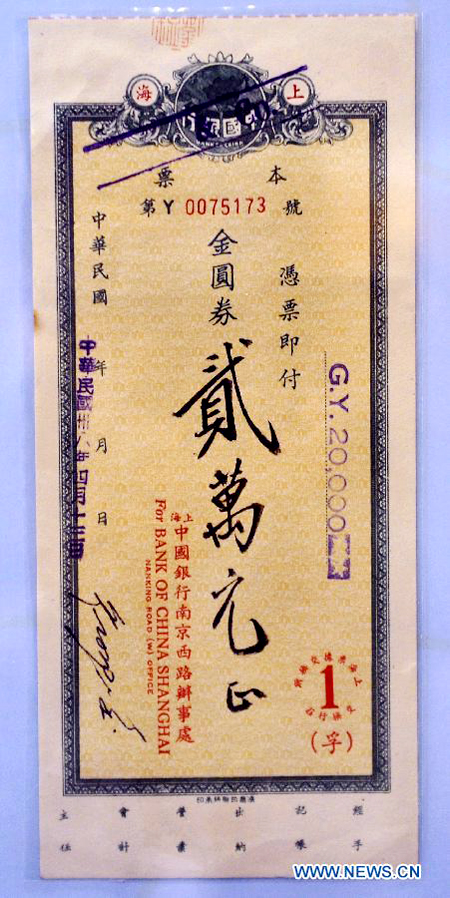 上海
中國銀行
BANK OF CHINA
本票
第 Y 0075173 號
憑票即付
金圓券
貳萬元正
G.Y. 20,000
中華民國 年 月 日
中華民國卅八年四月十三日
上海
中國銀行南京西路辦事處
For BANK OF CHINA SHANGHAI
NANKING ROAD (W) OFFICE
1
(孚)
經手
記帳
出納
營業
會計
主任
WWW.NEWS.CN